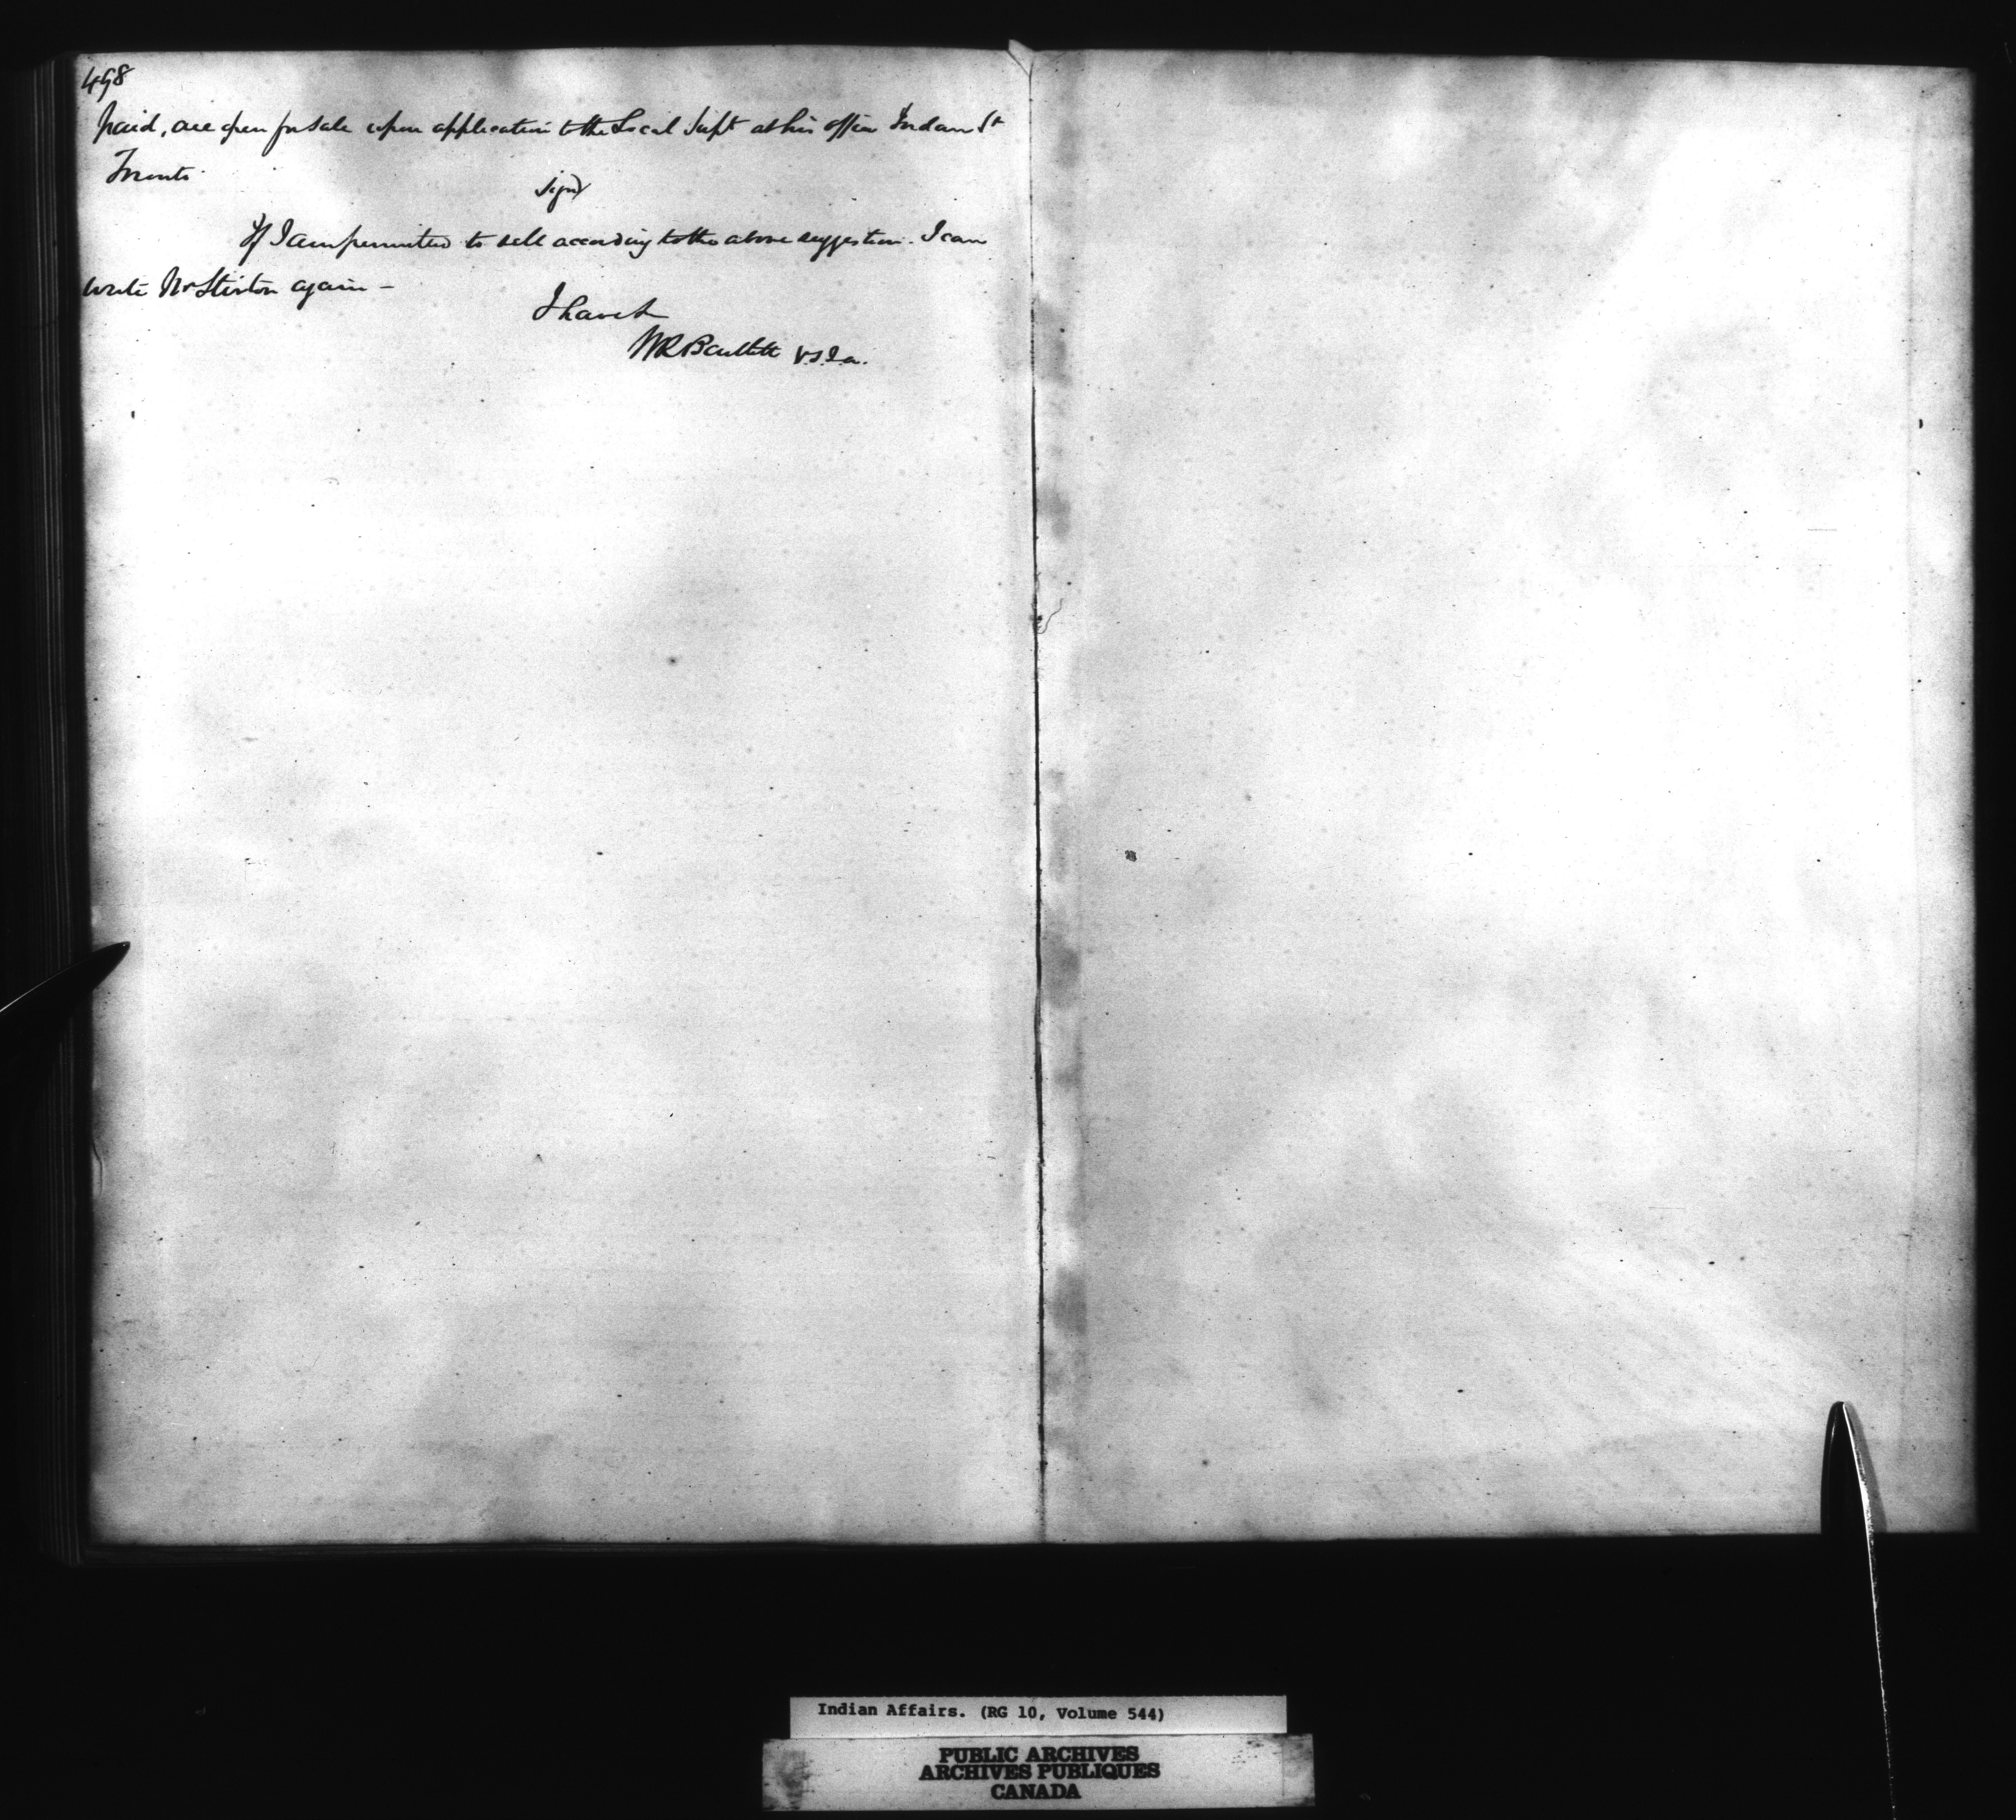 498
paid, are open for sale upon application to the Local Supt at his office Jordan St
Toronto
Signd
If I am permitted to sell according to the above suggestion. I can
write Mr Stirton again —
I have &c
WR Bartlett V.S.I.a.
Indian Affairs. (RG 10, Volume 544)
PUBLIC ARCHIVES
ARCHIVES PUBLIQUES
CANADA